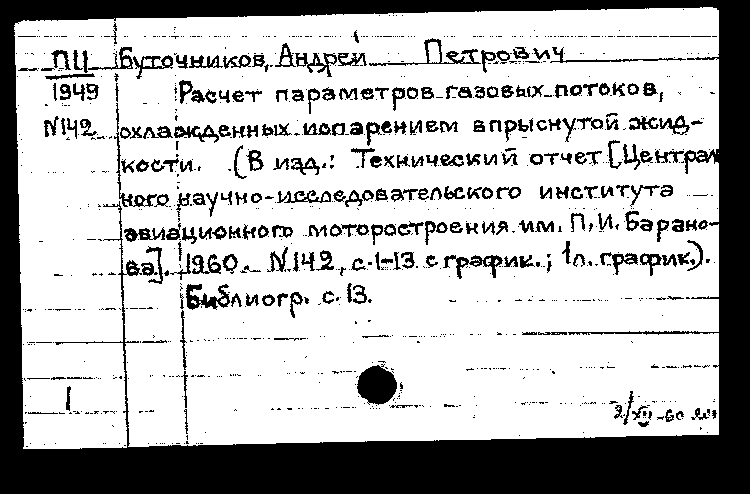 ПЦ Буточников, Андрей Петрович
1949 Расчет параметров газовых потоков,
N142 охлажденных испарением впрыснутой жид-
кости. (В изд.: Технический отчет [Централь
ного научно-исследовательского института
авиационного моторостроения им. П.И. Барано-
ва]. 1960. N142, с.1-13 с график.; 1 л. график.).
Библиогр. с.13.
1
2/XII-60